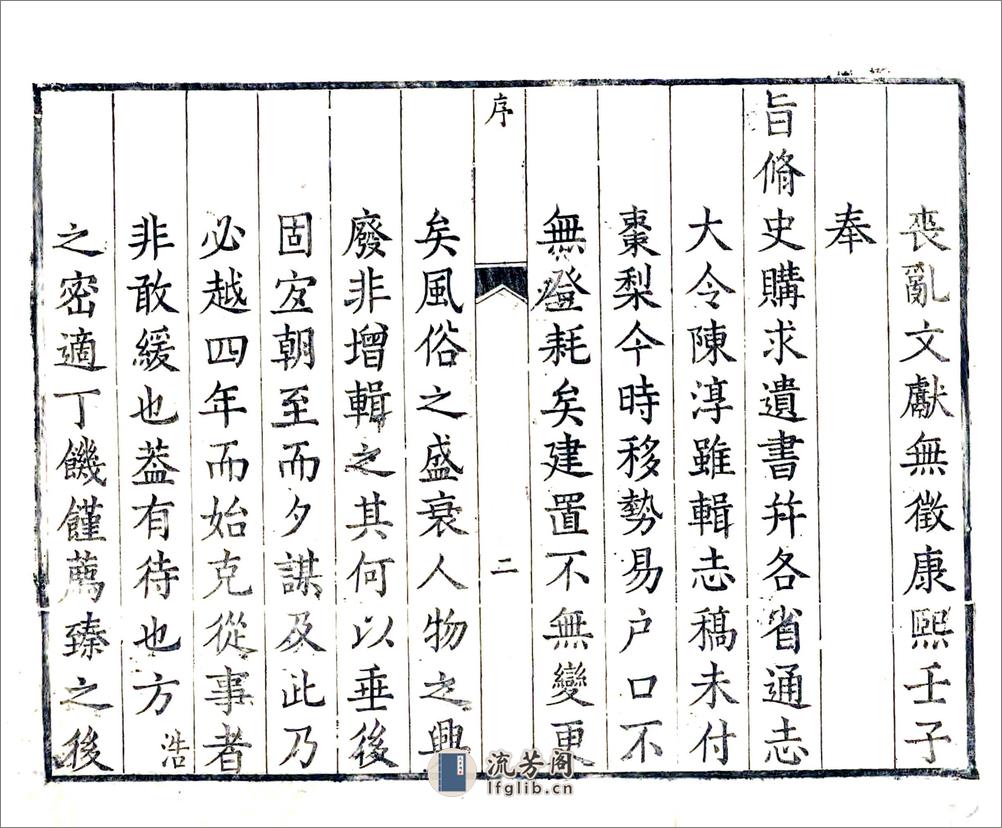 喪亂文獻無徵康熙壬子
奉
旨脩史購求遺書幷各省通志
大令陳淳雖輯志稿未付
棗梨今時移勢易户口不
無登耗矣建置不無變更
序
二
矣風俗之盛衰人物之興
廢非增輯之其何以垂後
固宐朝至而夕謀及此乃
必越四年而始克從事者
非敢緩也葢有待也方浩
之密適丁饑饉薦臻之後
流芳阁
lfglib.cn